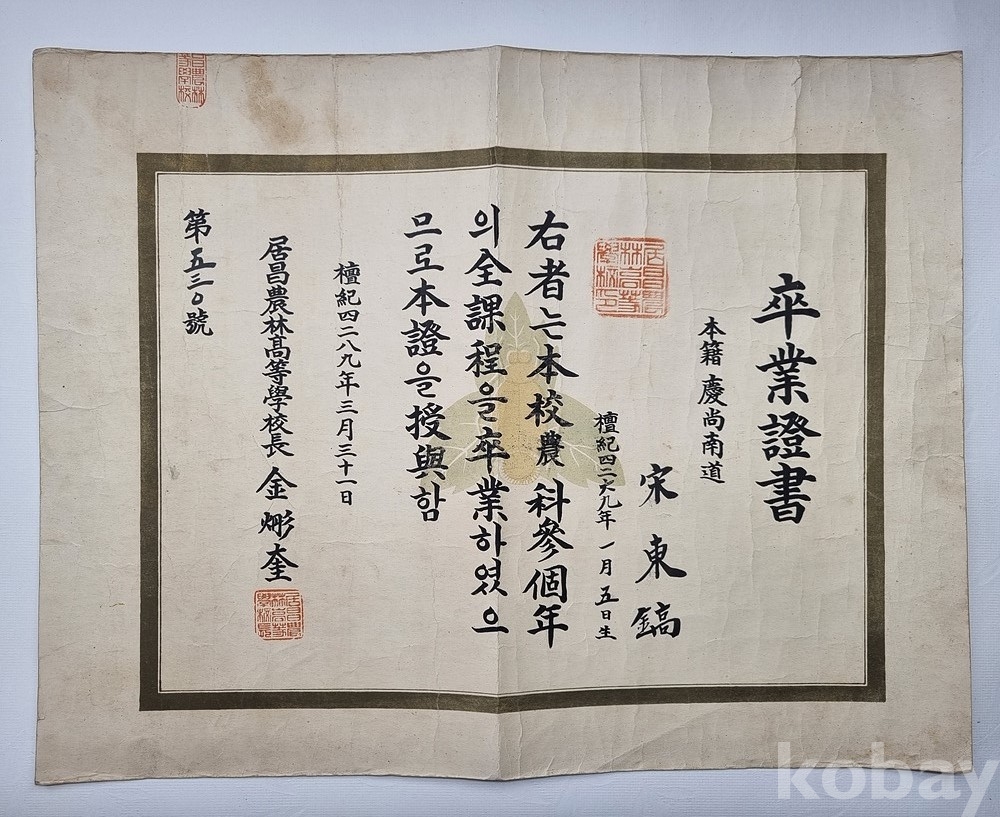 卒業證書
本籍 慶尚南道
宋東鎬
檀紀四二六九年 一月 五日生
右者는本校農科參個年
의全課程을卒業하였으
므로本證을授與함
檀紀四二八九年三月三十一日
居昌農林高等學校長 金 奎
第五三〇號
居昌農林高等學校印
kobay